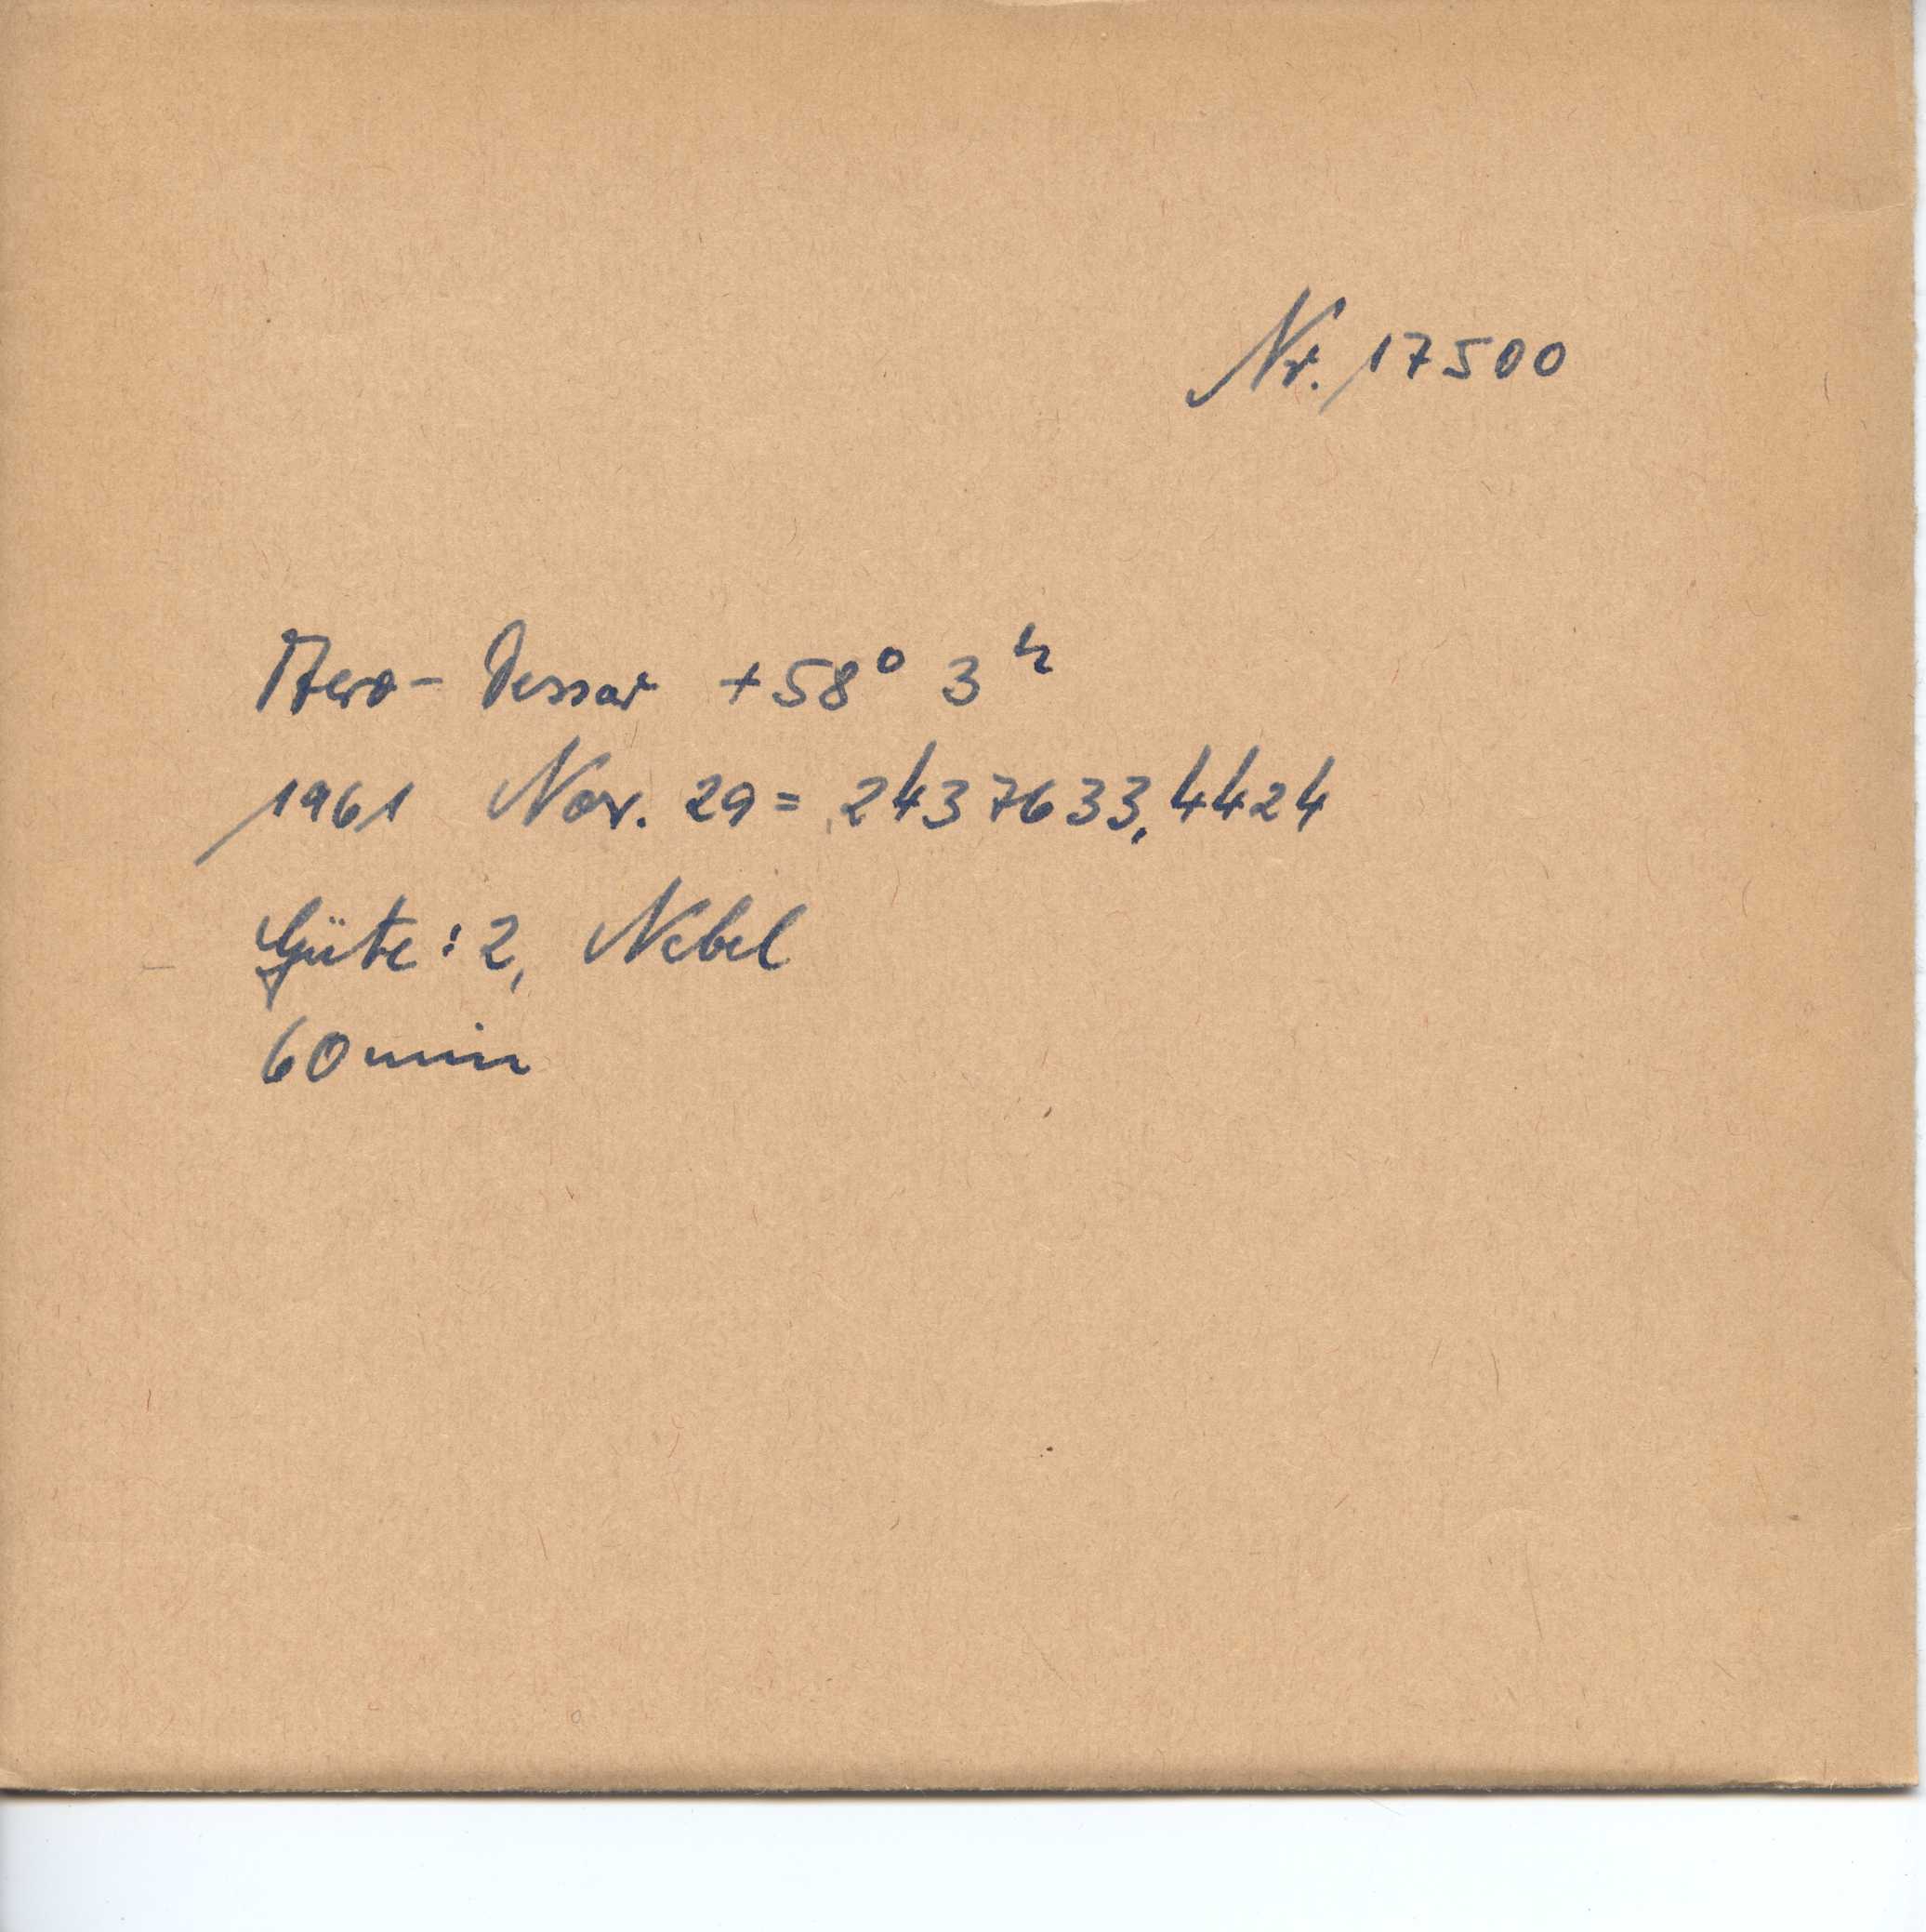 Nr. 17500
Aero-Tessar +58° 3ʰ
1961 Nov. 29 = 2437633,4424
Güte: 2, Nebel
60 min